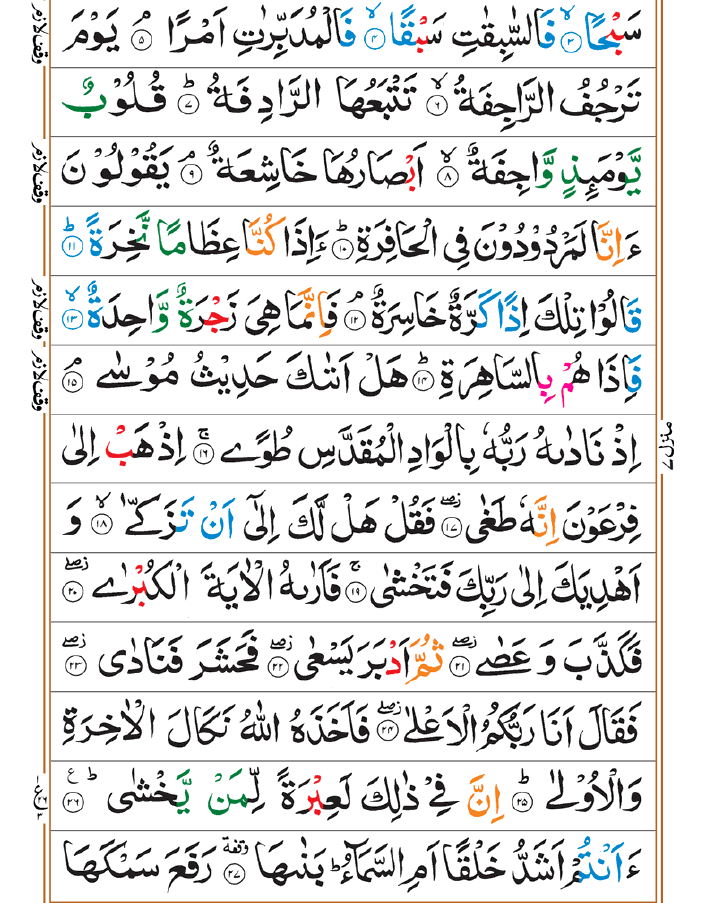 سَبْحًا ۙ﴿۳﴾ فَالسّٰبِقٰتِ سَبْقًا ۙ﴿۴﴾ فَالْمُدَبِّرٰتِ اَمْرًا ۘ﴿۵﴾ يَوْمَ
تَرْجُفُ الرَّاجِفَةُ ۙ﴿۶﴾ تَتْبَعُهَا الرَّادِفَةُ ؕ﴿۷﴾ قُلُوْبٌ
يَّوْمَئِذٍ وَّاجِفَةٌ ۙ﴿۸﴾ اَبْصَارُهَا خَاشِعَةٌ ۘ﴿۹﴾ يَقُوْلُوْنَ
ءَاِنَّا لَمَرْدُوْدُوْنَ فِى الْحَافِرَةِ ؕ﴿۱۰﴾ ءَاِذَا كُنَّا عِظَامًا نَّخِرَةً ؕ﴿۱۱﴾
قَالُوْا تِلْكَ اِذًا كَرَّةٌ خَاسِرَةٌ ۘ﴿۱۲﴾ فَاِنَّمَا هِىَ زَجْرَةٌ وَّاحِدَةٌ ۙ﴿۱۳﴾
فَاِذَا هُمْ بِالسَّاهِرَةِ ؕ﴿۱۴﴾ هَلْ اَتٰٮكَ حَدِيْثُ مُوْسٰى ۘ﴿۱۵﴾
اِذْ نَادٰٮهُ رَبُّهٗ بِالْوَادِ الْمُقَدَّسِ طُوًى ۚ﴿۱۶﴾ اِذْهَبْ اِلٰى
فِرْعَوْنَ اِنَّهٗ طَغٰى ۖ﴿۱۷﴾ فَقُلْ هَلْ لَّكَ اِلٰٓى اَنْ تَزَكّٰى ۙ﴿۱۸﴾ وَ
اَهْدِيَكَ اِلٰى رَبِّكَ فَتَخْشٰى ۚ﴿۱۹﴾ فَاَرٰٮهُ الْاٰيَةَ الْكُبْرٰى ۖ﴿۲۰﴾
فَكَذَّبَ وَ عَصٰى ۖ﴿۲۱﴾ ثُمَّ اَدْبَرَ يَسْعٰى ۖ﴿۲۲﴾ فَحَشَرَ فَنَادٰى ۖ﴿۲۳﴾
فَقَالَ اَنَا رَبُّكُمُ الْاَعْلٰى ۖ﴿۲۴﴾ فَاَخَذَهُ اللّٰهُ نَكَالَ الْاٰخِرَةِ
وَالْاُوْلٰى ؕ﴿۲۵﴾ اِنَّ فِىْ ذٰلِكَ لَعِبْرَةً لِّمَنْ يَّخْشٰى ؕ﴿۲۶﴾ ع
ءَاَنْتُمْ اَشَدُّ خَلْقًا اَمِ السَّمَآءُ ؕ بَنٰٮهَا وقفة ﴿۲۷﴾ رَفَعَ سَمْكَهَا
وقف لازم
وقف لازم
وقف لازم
وقف لازم
منزل ۷